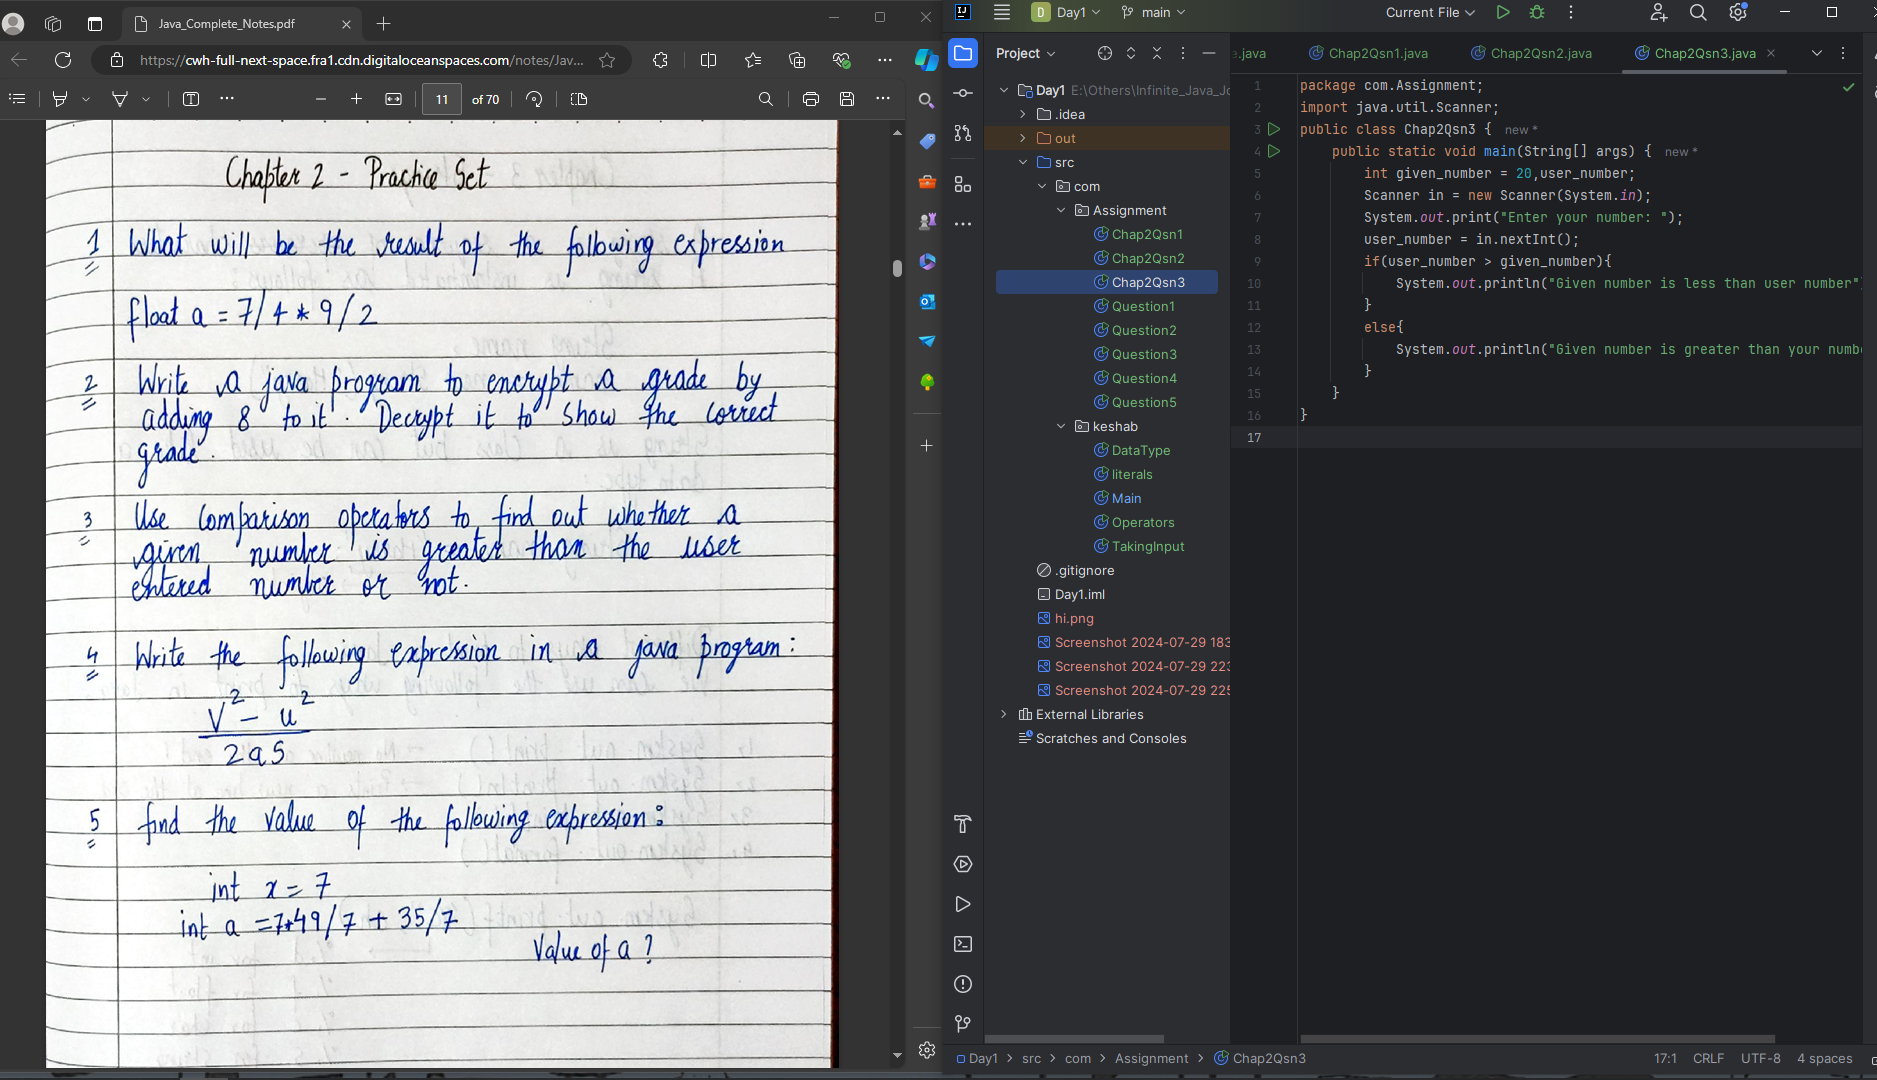 Java_Complete_Notes.pdf
https://cwh-full-next-space.fra1.cdn.digitaloceanspaces.com/notes/Jav...
11 of 70
Chapter 2 - Practice Set
1 What will be the result of the following expression
float a = 7/4 * 9/2
2 Write a java program to encrypt a grade by
adding 8 to it. Decrypt it to show the correct
grade.
3 Use comparison operators to find out whether a
given number is greater than the user
entered number or not.
4 Write the following expression in a java program:
v² - u²
2as
5 find the value of the following expression:
int x = 7
int a = 7*49/7 + 35/7
Value of a ?
D Day1 main Current File
Project
Day1 E:\Others\Infinite_Java_Jo
.idea
out
src
com
Assignment
Chap2Qsn1
Chap2Qsn2
Chap2Qsn3
Question1
Question2
Question3
Question4
Question5
keshab
DataType
literals
Main
Operators
TakingInput
.gitignore
Day1.iml
hi.png
Screenshot 2024-07-29 183
Screenshot 2024-07-29 223
Screenshot 2024-07-29 225
External Libraries
Scratches and Consoles
e.java Chap2Qsn1.java Chap2Qsn2.java Chap2Qsn3.java
1 package com.Assignment;
2 import java.util.Scanner;
3 public class Chap2Qsn3 { new *
4 public static void main(String[] args) { new *
5 int given_number = 20,user_number;
6 Scanner in = new Scanner(System.in);
7 System.out.print("Enter your number: ");
8 user_number = in.nextInt();
9 if(user_number > given_number){
10 System.out.println("Given number is less than user number"
11 }
12 else{
13 System.out.println("Given number is greater than your numb
14 }
15 }
16 }
17
Day1 > src > com > Assignment > Chap2Qsn3
17:1 CRLF UTF-8 4 spaces